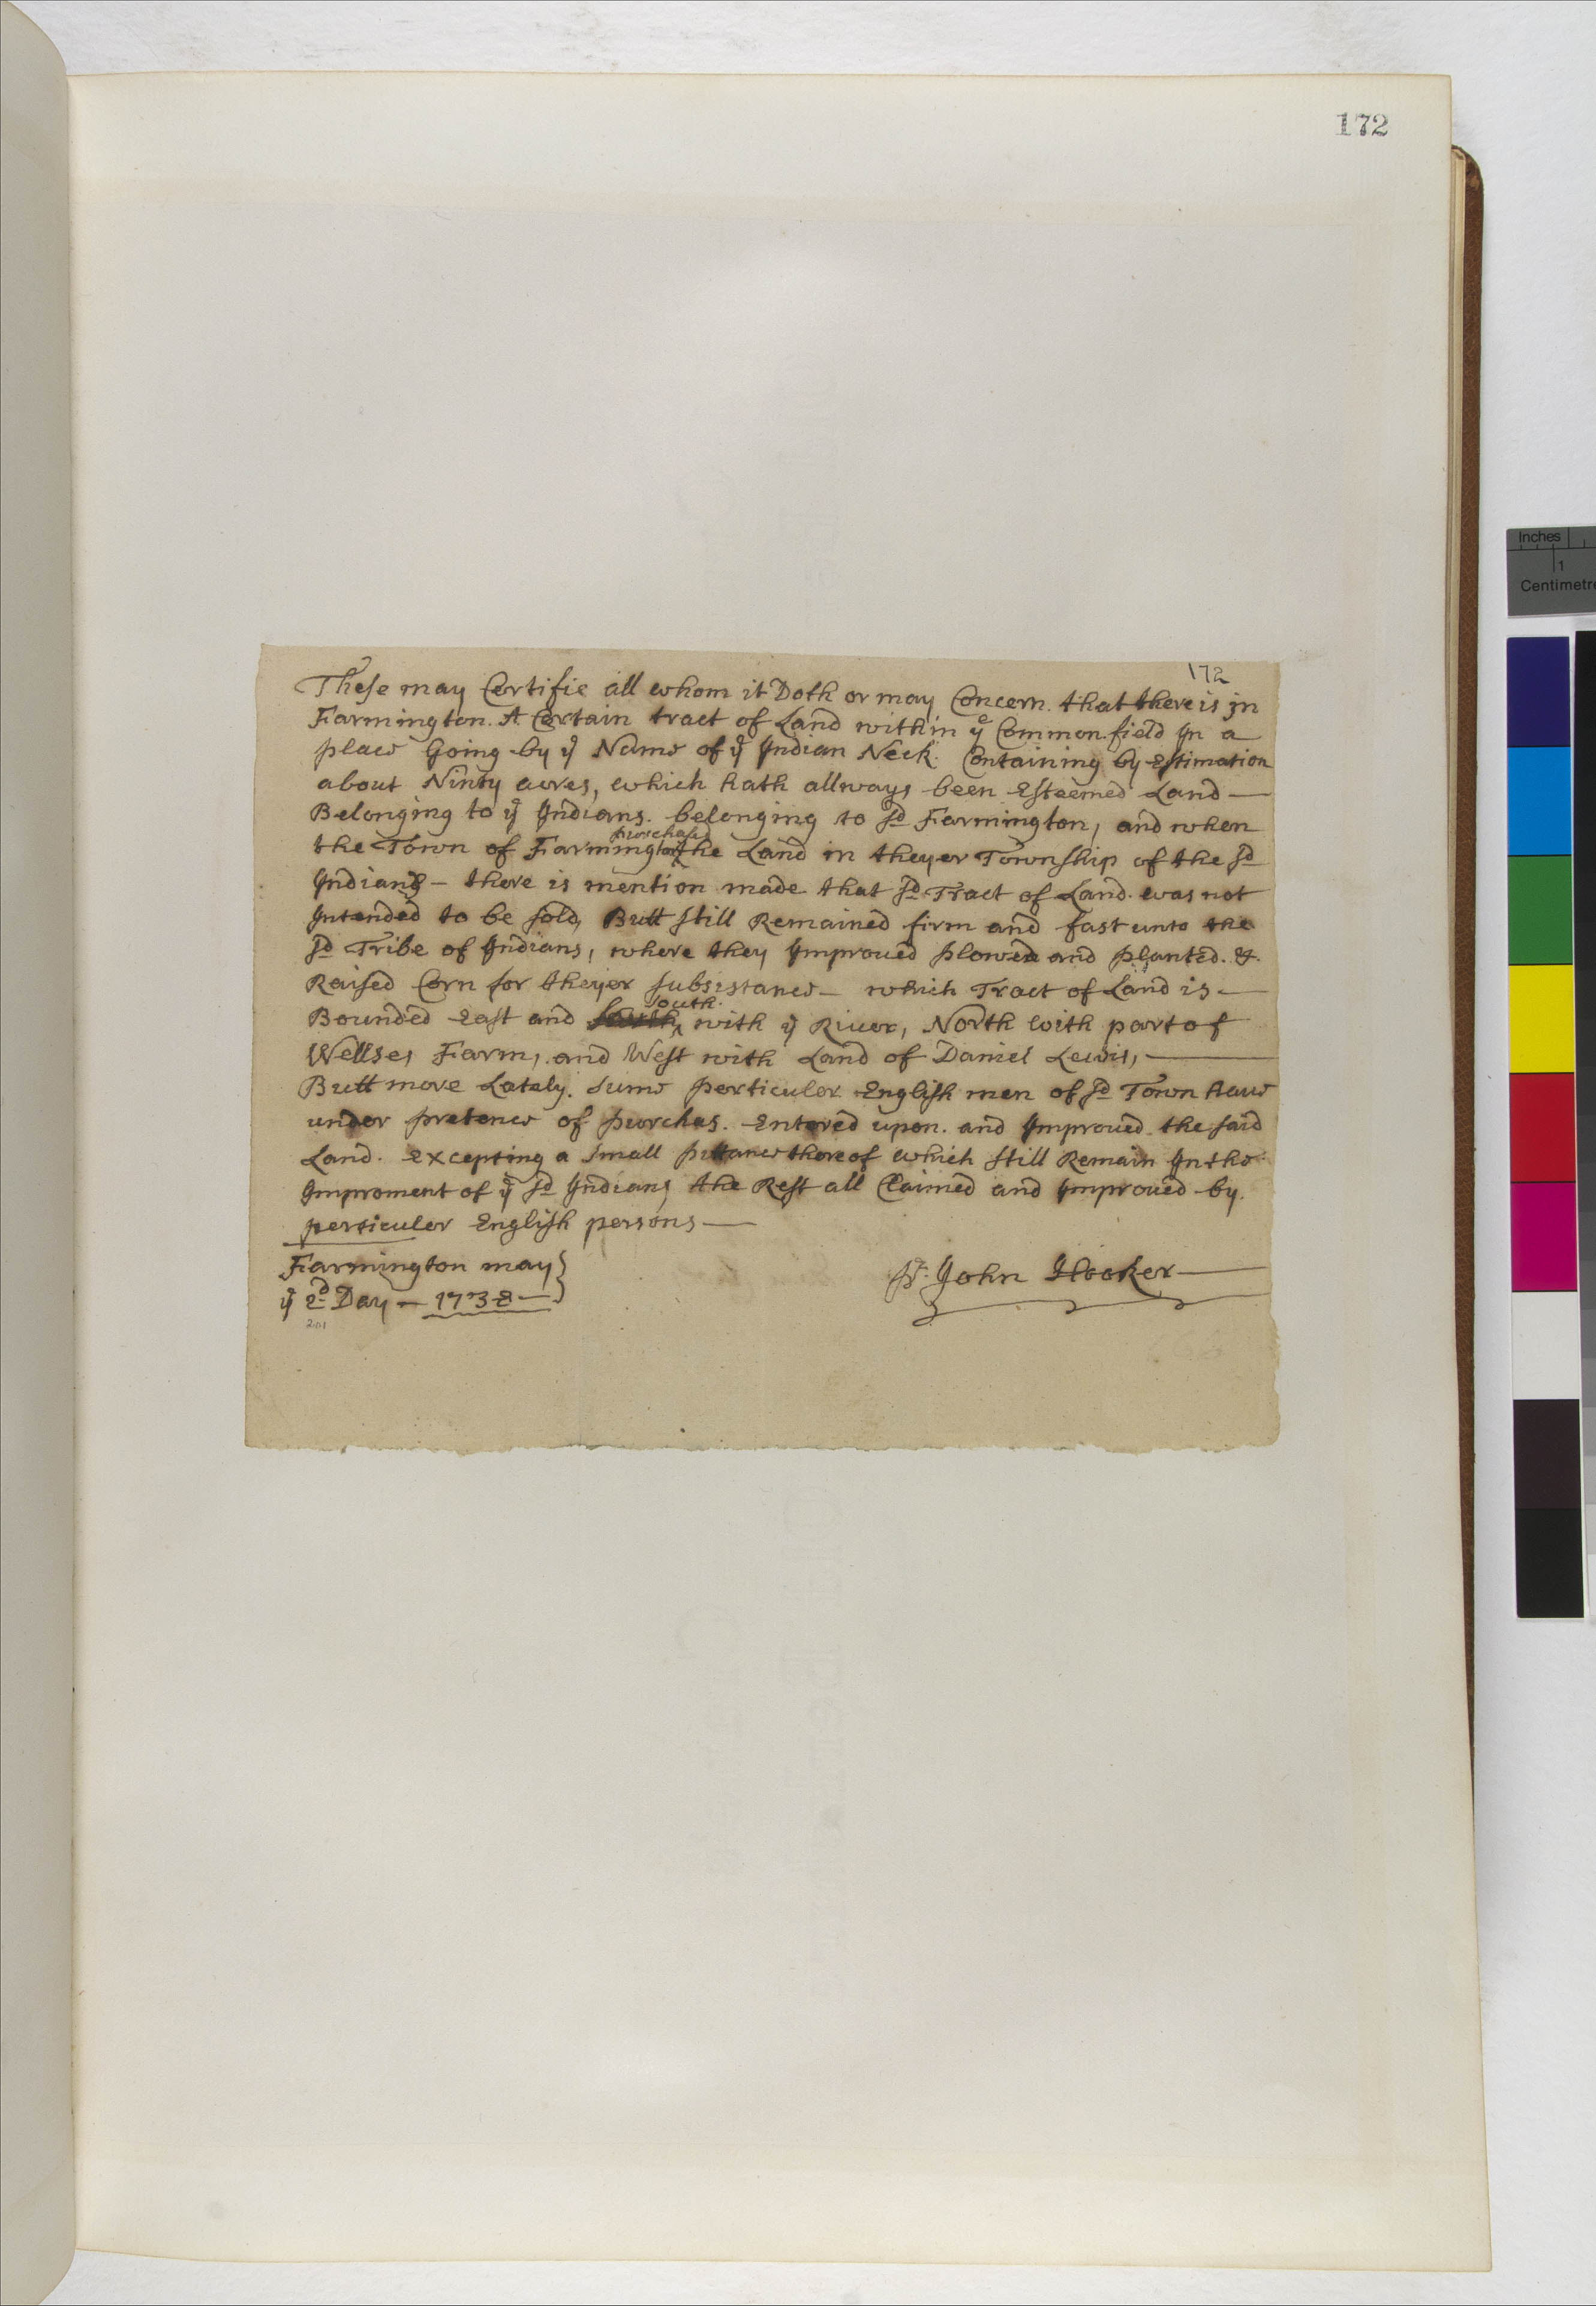 172
172
These may Certifie all whom it Doth or may Concern that there is jn
Farmington. A Certain tract of Land within ye Common field In a
place Going by ye Name of ye Indian Neck. Containing by Estimation
about Ninty acres, which hath allways been Esteemed Land —
Belonging to ye Indians. belonging to sd Farmington, and when
purchased
the Town of Farmington ^ the Land in theyer Township of the sd
Indians – there is mention made that sd Tract of Land was not
Intended to be sold, Butt still Remained firm and fast unto the
sd Tribe of Indians, where they Improued plowed and planted. &.
Raised Corn for theyer subsistance – which Tract of Land is –
south
Bounded East and ^ with ye Riuer, North with part of
Wellses Farm, and West with Land of Daniel Lewis, —
Butt more Lataly. sume perticuler English men of sd Town haue
under pretence of purchas. Entered upon. and Improued the said
Land. excepting a small pittance thereof which still Remain In the
Improment of ye sd Indians the Rest all Claimed and Improued by.
perticuler English persons —
Farmington may }
ye 2d Day – 1738 – }
pr. John Hooker —
2d